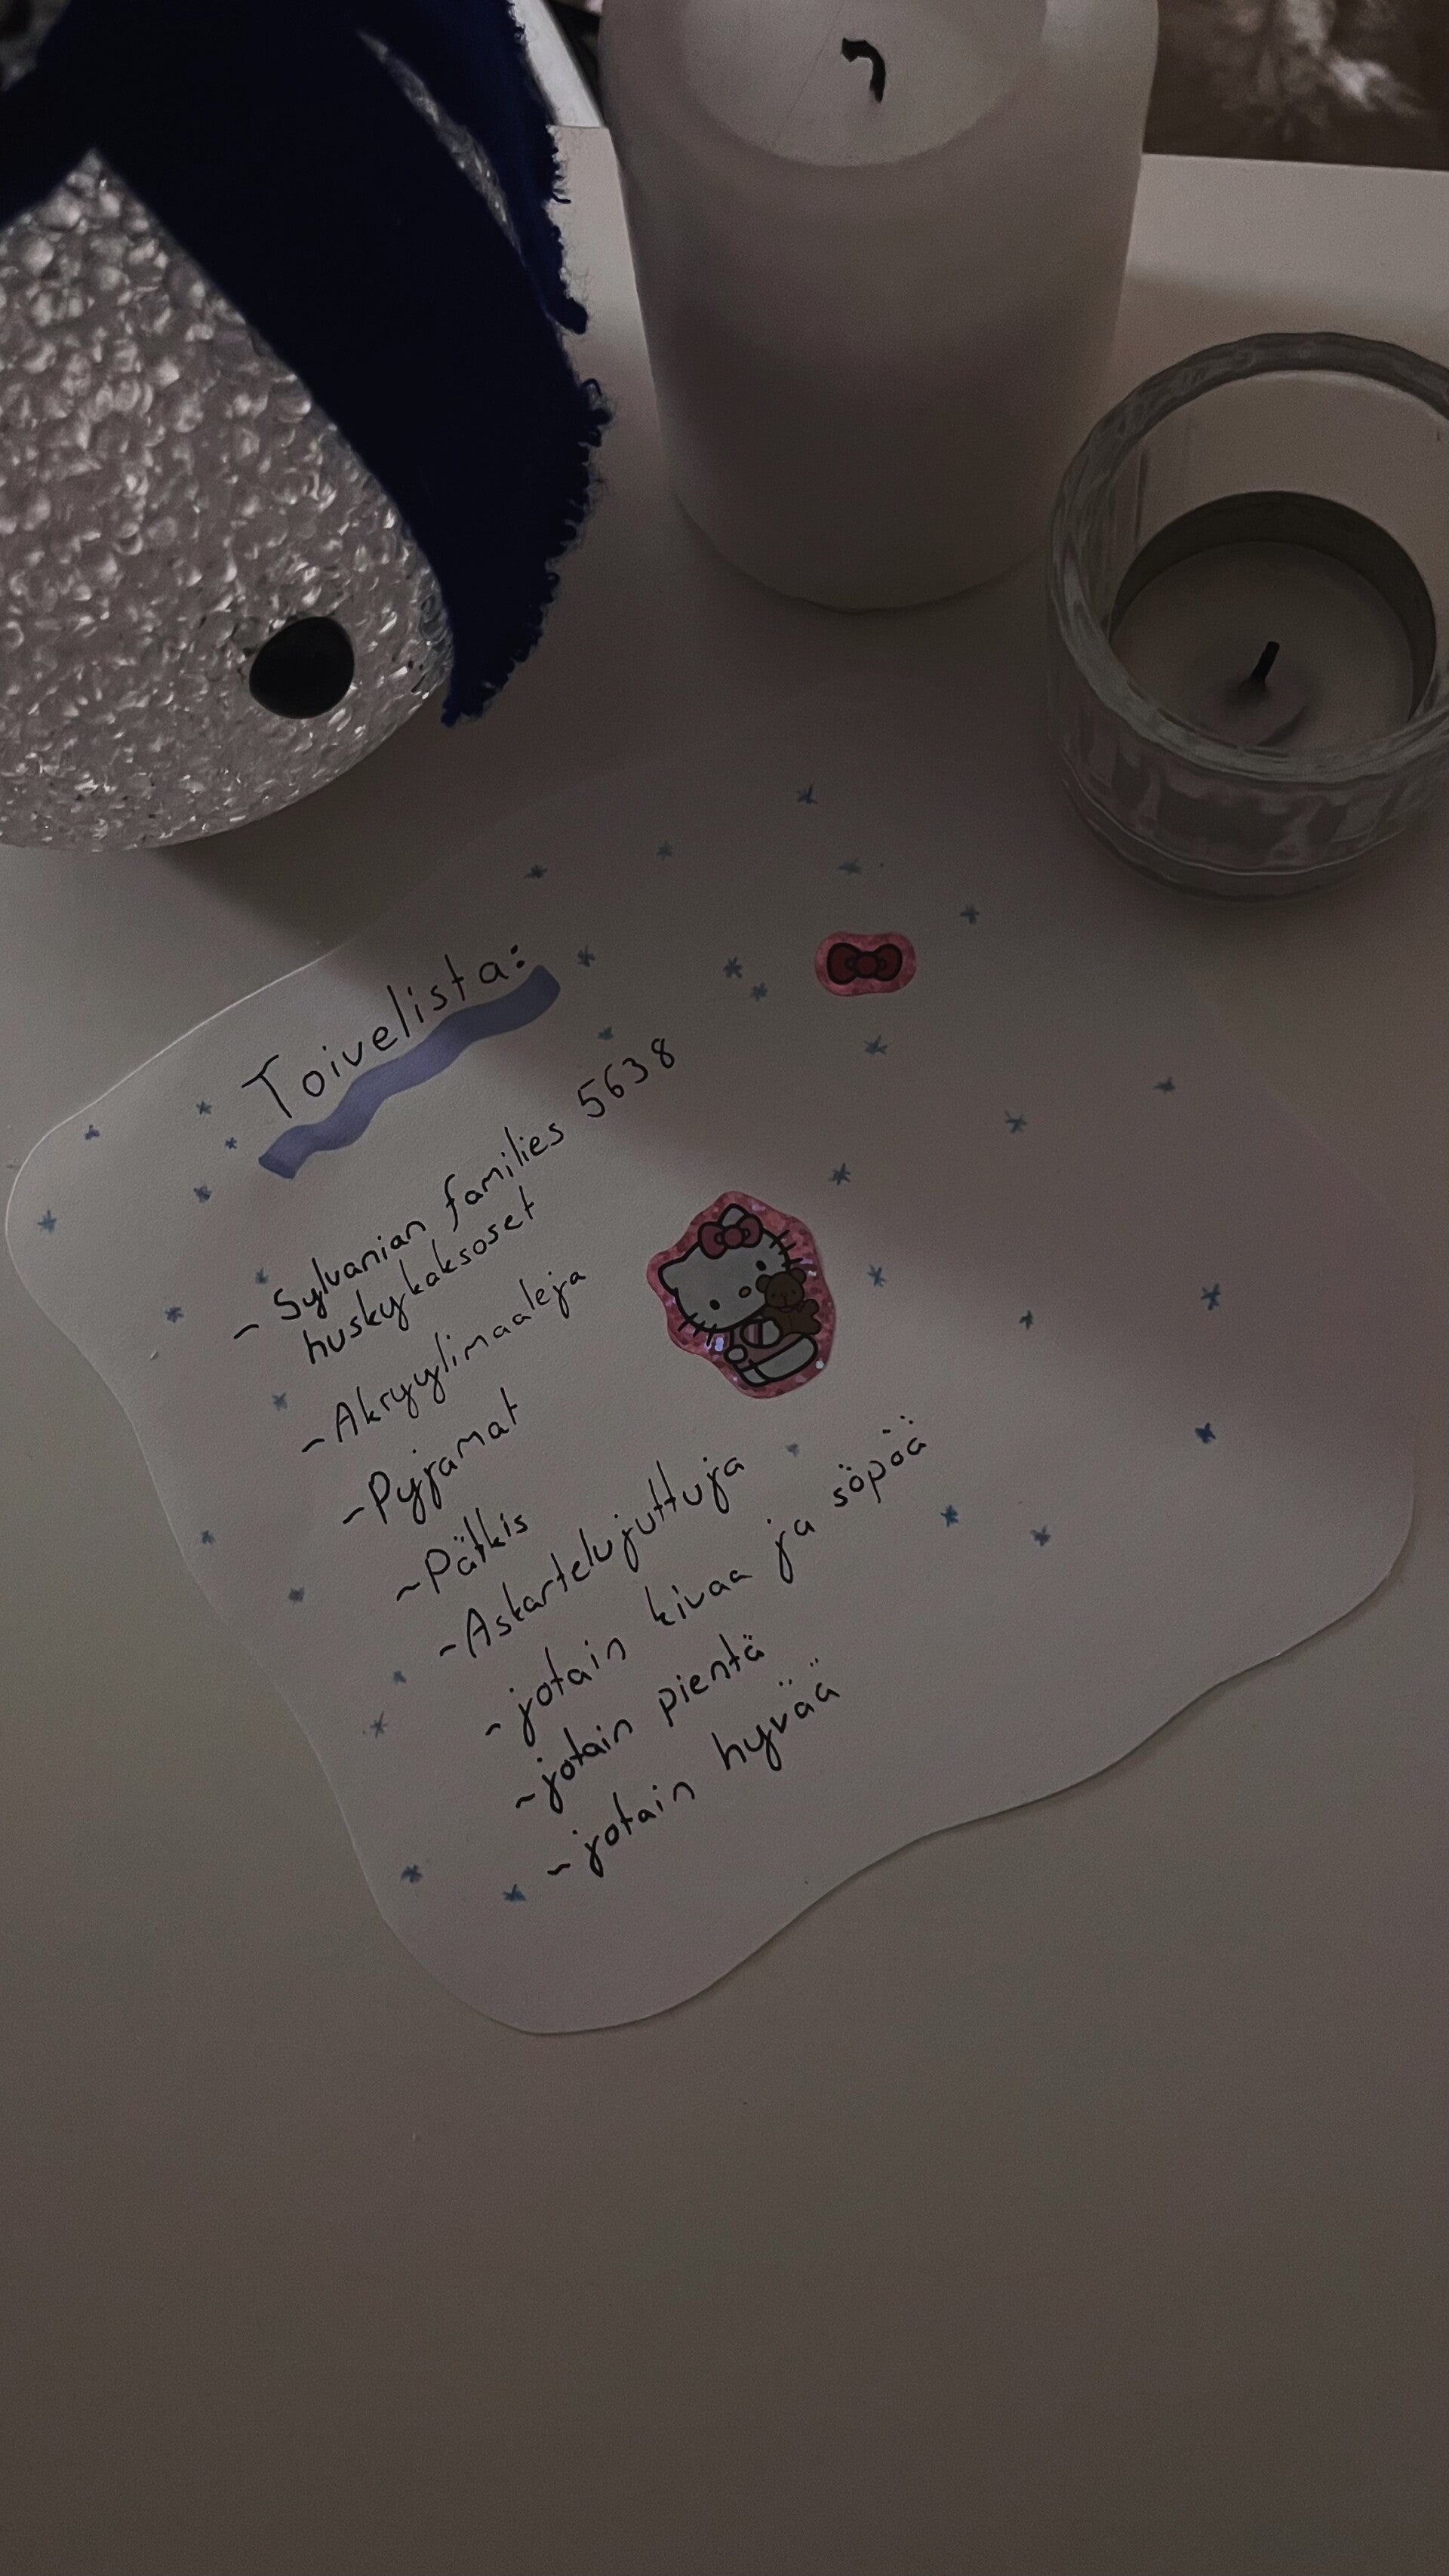 Toivelista:
~ Sylvanian families 5638
huskykaksoset
~ Akryylimaaleja
~ Pyjamat
~ Pätkis
~ Askartelujuttuja
~ jotain kivaa ja söpöä
~ jotain pientä
~ jotain hyvää